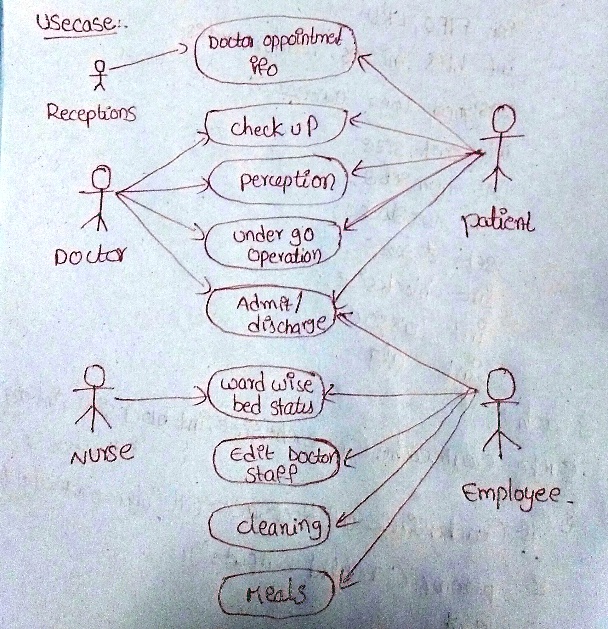 Usecase:.
Doctor appointment
ifo
Receptions
check up
perception
patient
Doctor
under go
operation
Admit/
discharge
ward wise
bed status
Nurse
Edit Doctor
staff
Employee
cleaning
Meals